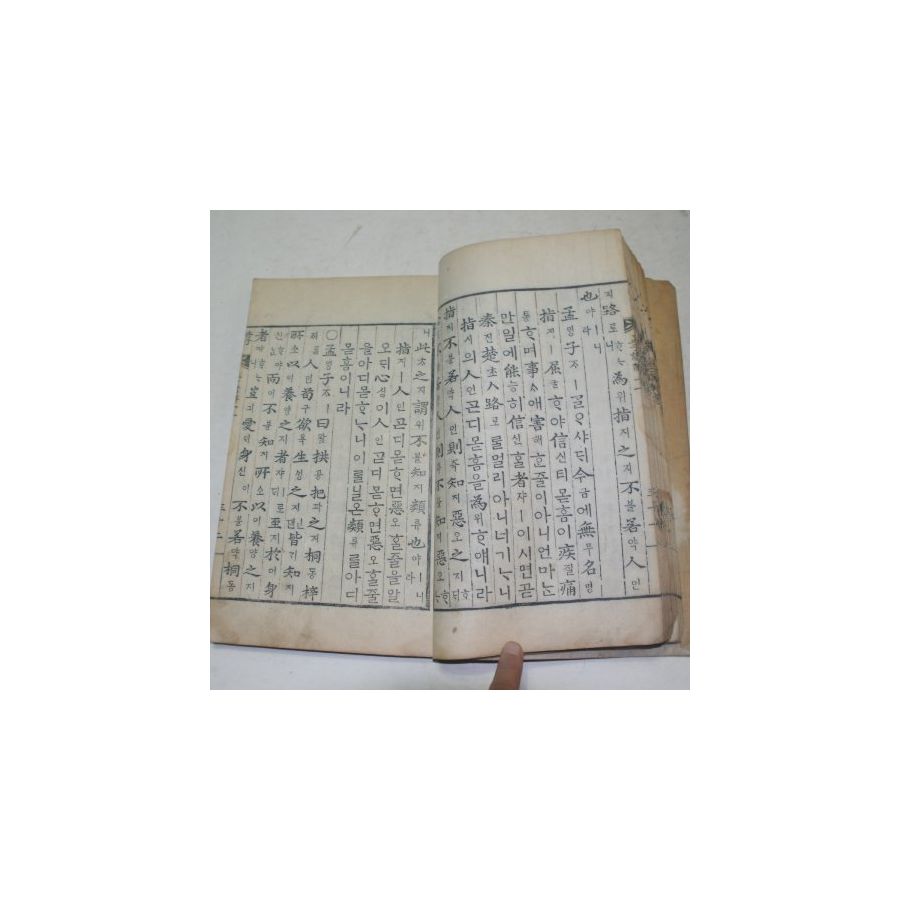 지路로ㅣ니ᄒᆞᄂᆞ為위指지之지不불若약人인
也야ㅣ니라
孟ᄆᆡᆼ子ᄌᆞㅣᄀᆞᆯᄋᆞ샤ᄃᆡ今금에無무名명
指지ㅣ屈굴ᄒᆞ야信신티몯홈이疾질痛
통ᄒᆞ며事ᄉᆞ애害해ᄒᆞᆫ줄이아니언마ᄂᆞᆫ
만일에能능히信신ᄒᆞᆯ者쟈ㅣ이시면곧
秦진楚초人路로ᄅᆞᆯ멀리아니너기ᄂᆞ니
指지의人인곧디몯홈을為위ᄒᆞ얘니라
指지不불若약人인則즉知지惡오之지ᄒᆞᄃᆡ
人인則즉不블知지惡오ᄒᆞᄂᆞ
니此ᄎᆞ之지謂위不블知지類류也야ㅣ니라
指지ㅣ人인곧디몯ᄒᆞ면惡오ᄒᆞᆯ줄을알
오ᄃᆡ心심이人인곧디몯ᄒᆞ면惡오ᄒᆞᆯ줄
을아디몯ᄒᆞᄂᆞ니이ᄅᆞᆯ닐온類류ᄅᆞᆯ아디
몯홈이니라
○孟ᄆᆡᆼ子ᄌᆞㅣ曰왈拱공把파之지桐동梓
ᄌᆡᄅᆞᆯ人인이苟구欲욕生ᄉᆡᆼ之지ᅟᅵᆫ댄皆ᄀᆡ知지
所소以이養양之지者쟈ㅣ로ᄃᆡ至지於어身
신ᄒᆞ야而이不블知지所소以이養양之지
者쟈ᄒᆞᄂᆞ니豈긔愛ᄋᆡ身신이不블若약桐동